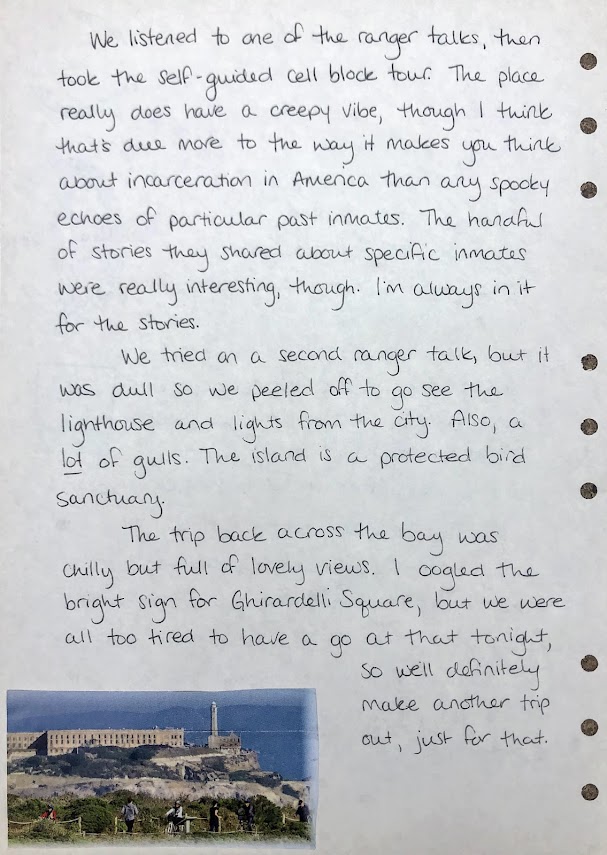 We listened to one of the ranger talks, then
took the self-guided cell block tour. The place
really does have a creepy vibe, though I think
that's due more to the way it makes you think
about incarceration in America than any spooky
echoes of particular past inmates. The handful
of stories they shared about specific inmates
were really interesting, though. I'm always in it
for the stories.
We tried on a second ranger talk, but it
was dull so we peeled off to go see the
lighthouse and lights from the city. Also, a
lot of gulls. The island is a protected bird
sanctuary.
The trip back across the bay was
chilly but full of lovely views. I oogled the
bright sign for Ghirardelli Square, but we were
all too tired to have a go at that tonight,
so we'll definitely
make another trip
out, just for that.